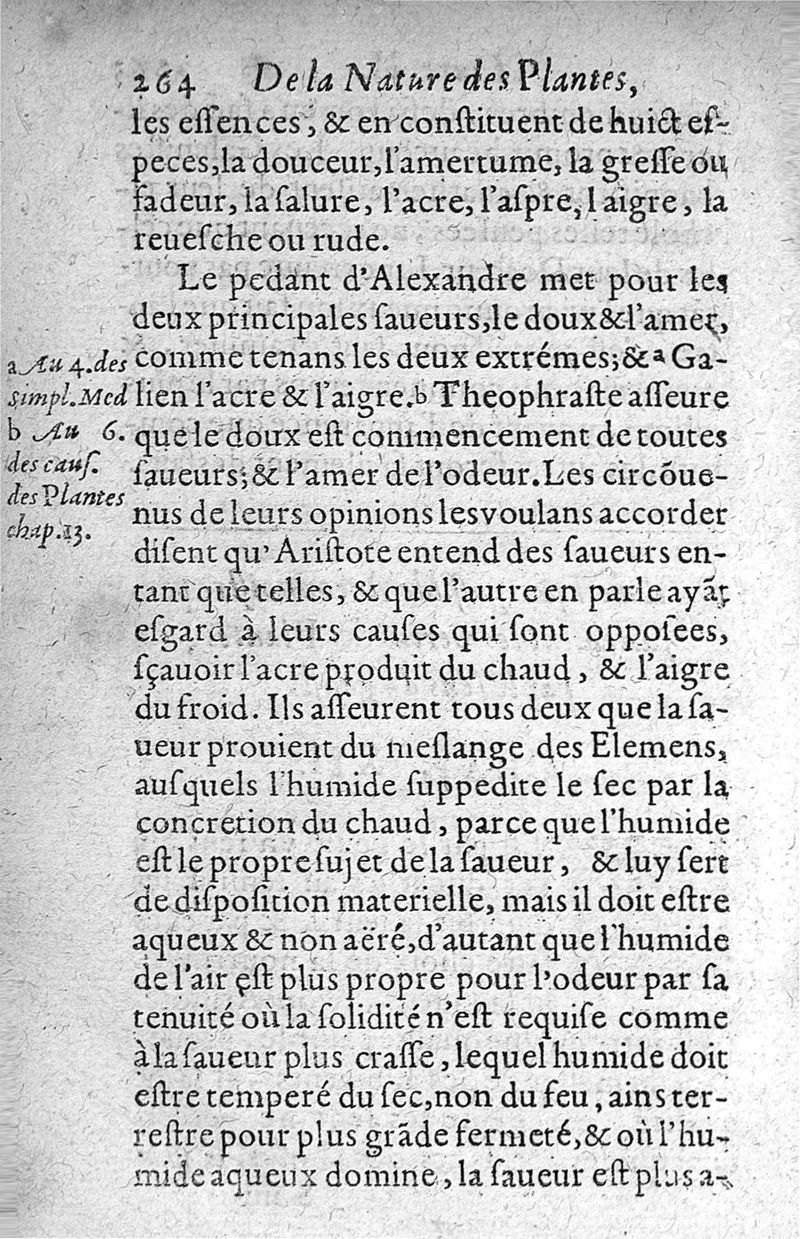 264 De la Nature des Plantes,
les essences, & en constituent de huict es-
peces, la douceur, l'amertume, la gresse ou
fadeur, la salure, l'acre, l'aspre, l aigre, la
reuesche ou rude.
Le pedant d'Alexandre met pour les
deux principales saueurs, le doux & l'amer,
comme tenans les deux extrémes; & a Ga-
lien l'acre & l'aigre. b Theophraste asseure
que le doux est commencement de toutes
saueurs; & l'amer de l'odeur. Les circõue-
nus de leurs opinions les voulans accorder
disent qu'Aristote entend des saueurs en-
tant que telles, & que l'autre en parle ayãt
esgard à leurs causes qui sont opposees,
sçauoir l'acre produit du chaud, & l'aigre
du froid. Ils asseurent tous deux que la sa-
ueur prouient du meslange des Elemens,
ausquels l'humide suppedite le sec par la
concretion du chaud, parce que l'humide
est le propre sujet de la saueur, & luy sert
de disposition materielle, mais il doit estre
aqueux & non aëré, d'autant que l'humide
de l'air est plus propre pour l'odeur par sa
tenuité où la solidité n'est requise comme
à la saueur plus crasse, lequel humide doit
estre temperé du sec, non du feu, ains ter-
restre pour plus grãde fermeté, & où l'hu-
mide aqueux domine, la saueur est plus a-
a Au 4. des
simpl. Med
b Au 6.
des caus.
des Plantes
chap. 13.